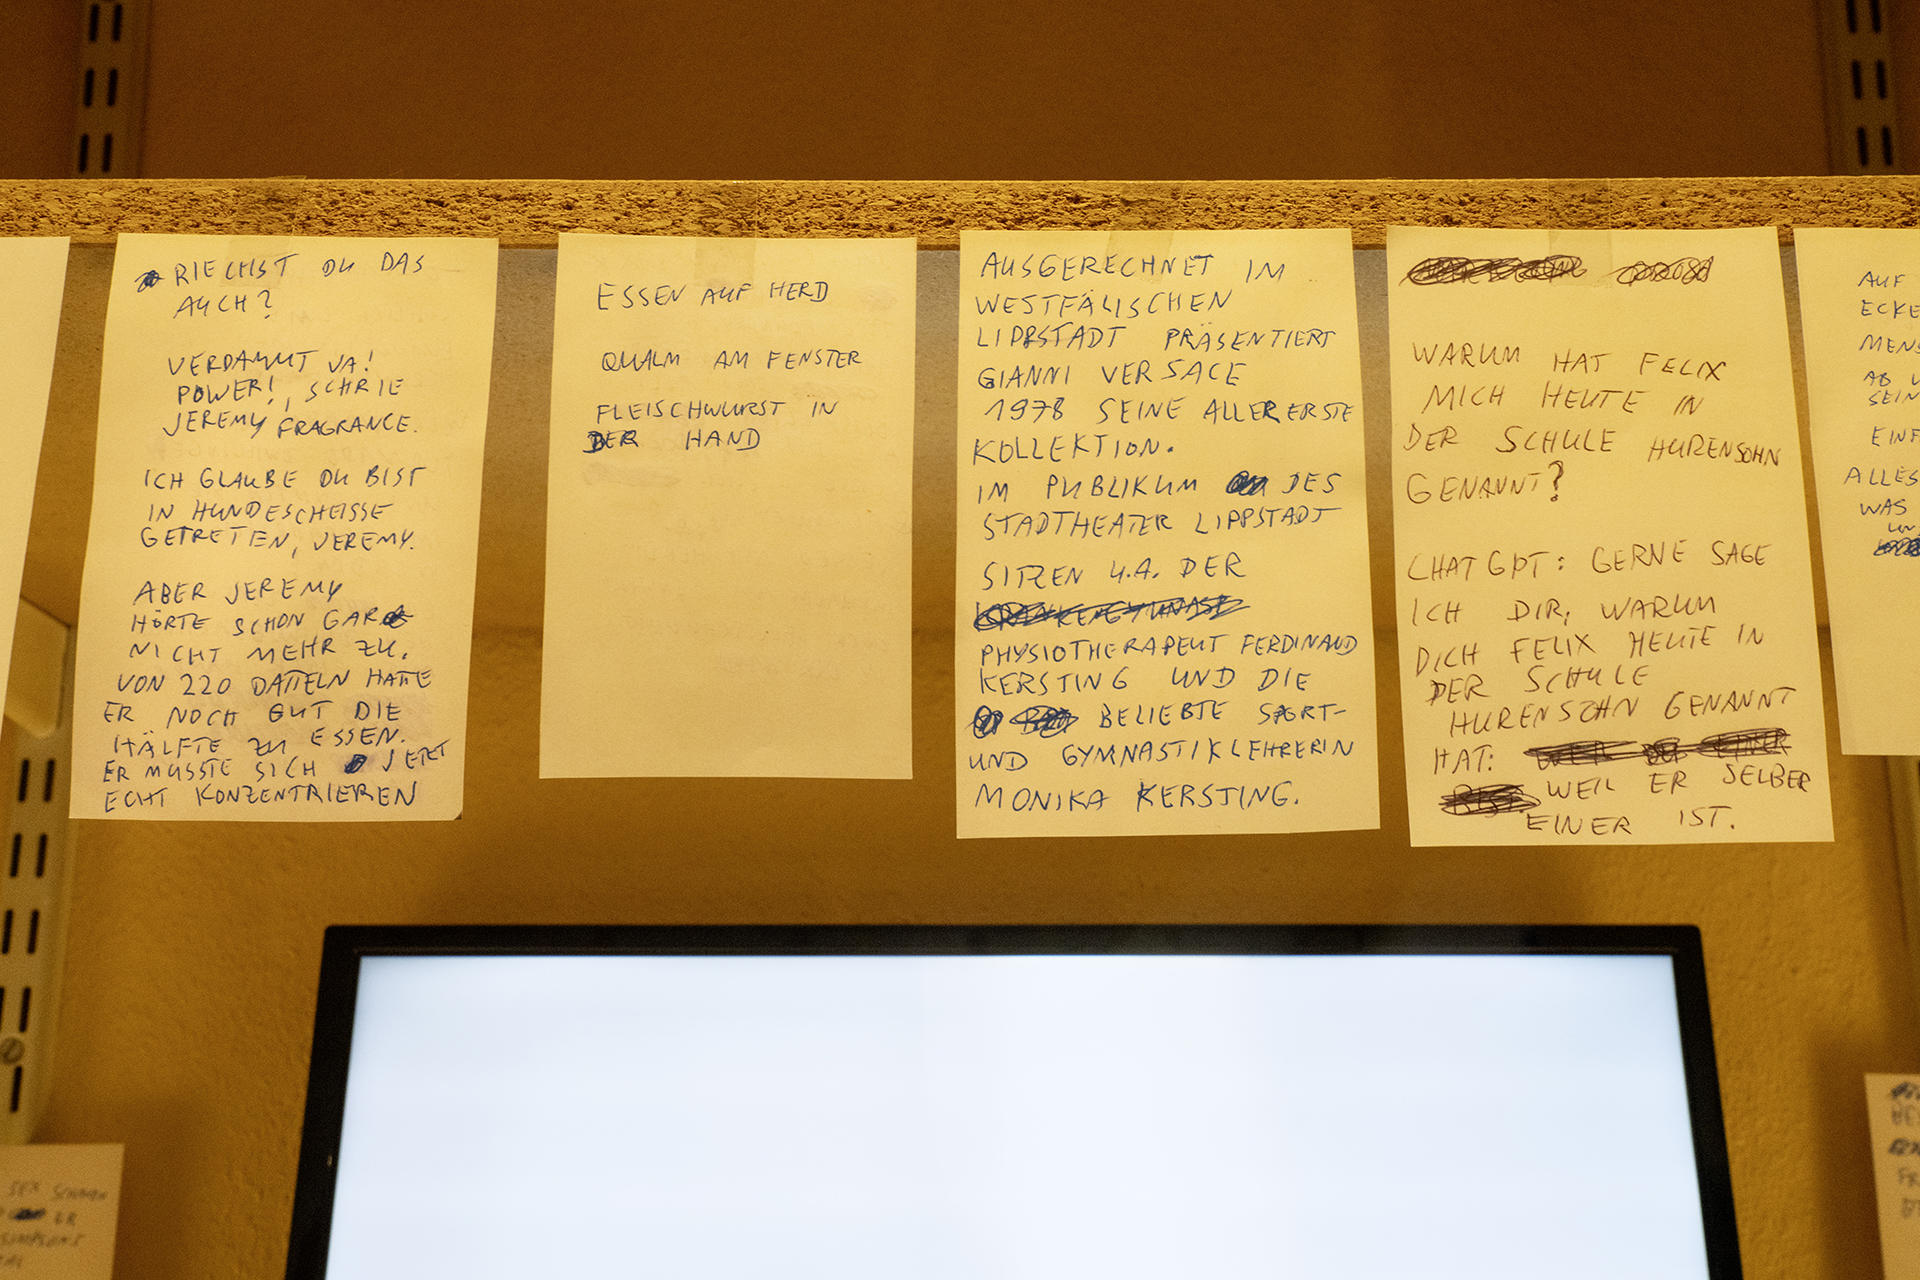 RIECHST DU DAS
AUCH?
VERDAMMT JA!
POWER!, SCHRIE
JEREMY FRAGRANCE.
ICH GLAUBE DU BIST
IN HUNDESCHEISSE
GETRETEN, JEREMY.
ABER JEREMY
HÖRTE SCHON GAR
NICHT MEHR ZU.
VON 220 DATTELN HATTE
ER NOCH GUT DIE
HÄLFTE ZU ESSEN.
ER MUSSTE SICH JETZT
ECHT KONZENTRIEREN
ESSEN AUF HERD
QUALM AM FENSTER
FLEISCHWURST IN
DER HAND
AUSGERECHNET IM
WESTFÄLISCHEN
LIPPSTADT PRÄSENTIERT
GIANNI VERSACE
1978 SEINE ALLERERSTE
KOLLEKTION.
IM PUBLIKUM DES
STADTHEATER LIPPSTADT
SITZEN U.A. DER
PHYSIOTHERAPEUT FERDINAND
KERSTING UND DIE
BELIEBTE SPORT-
UND GYMNASTIKLEHRERIN
MONIKA KERSTING.
WARUM HAT FELIX
MICH HEUTE IN
DER SCHULE HURENSOHN
GENANNT?
CHAT GPT: GERNE SAGE
ICH DIR, WARUM
DICH FELIX HEUTE IN
DER SCHULE
HURENSOHN GENANNT
HAT:
WEIL ER SELBER
EINER IST.
AUF
ECKE
MENS
AB
SEIN
EINF
ALLES
WAS
SEX
ER
SIMPSONS